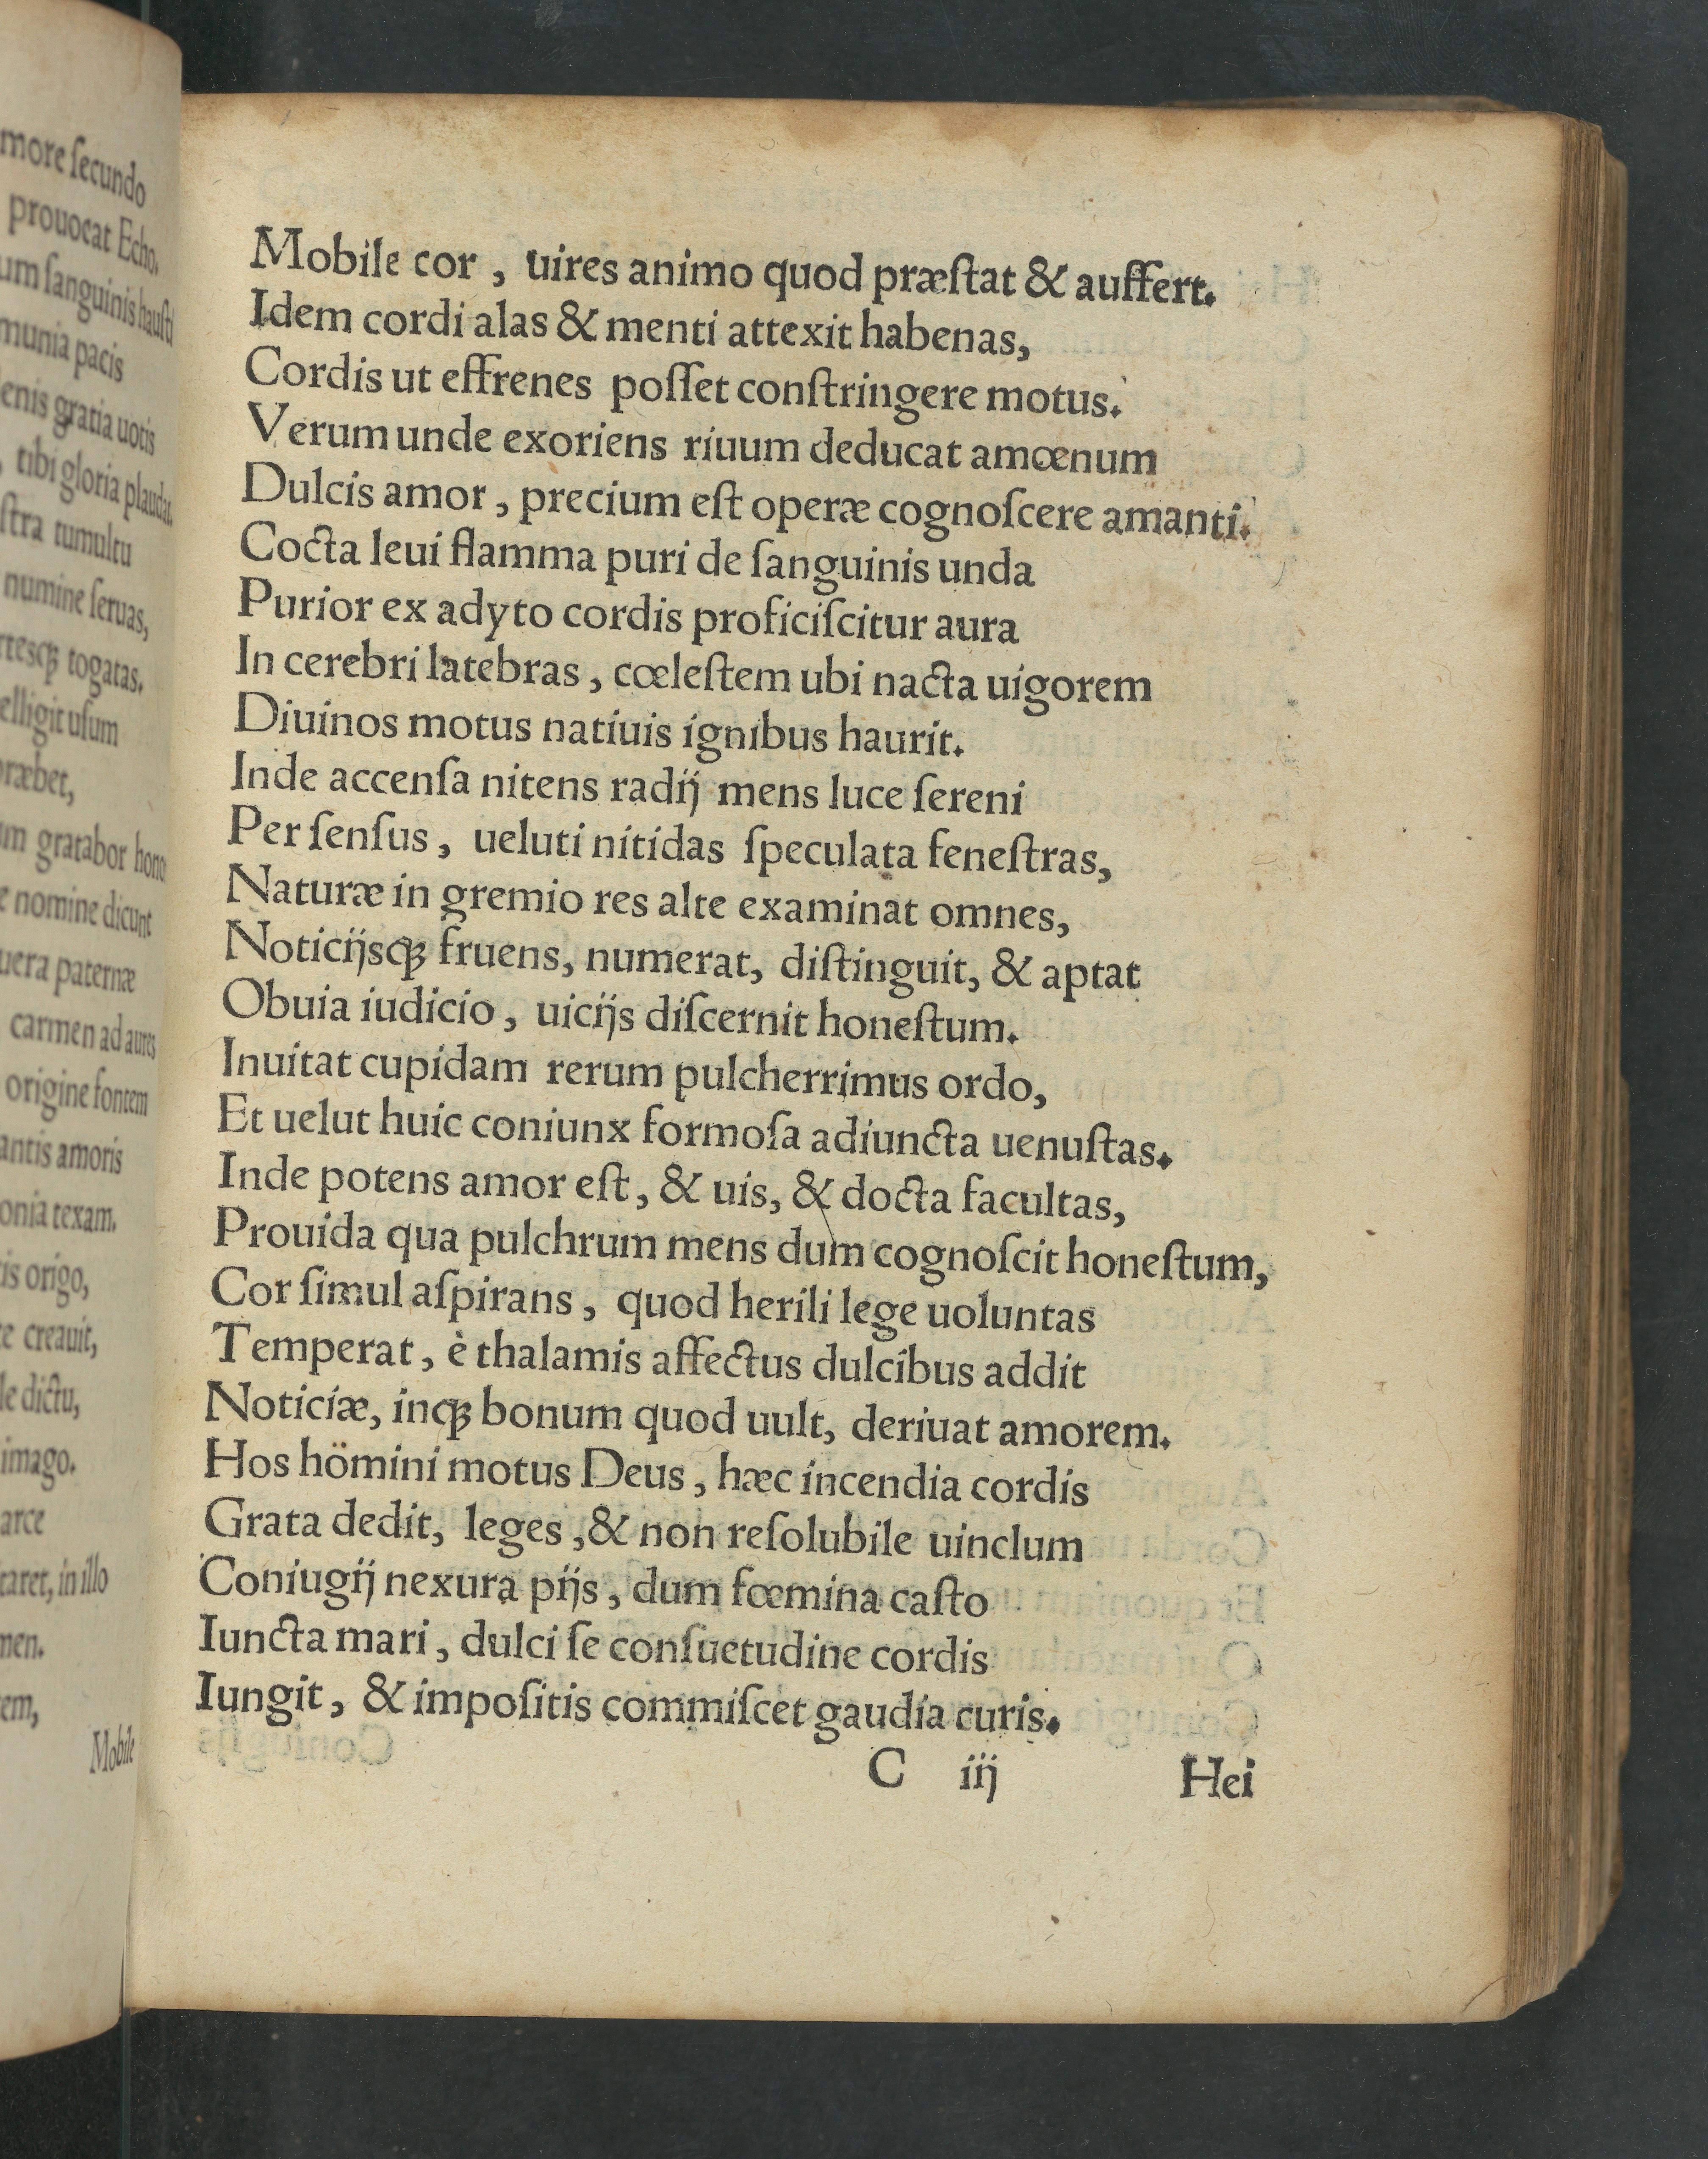 more ſecundo
prouocat Echo.
um ſanguinis hauſti
munia pacis
enis gratia uotis
tibi gloria plaudat
ſtra tumultu
numine ſeruas,
rtesq́ꝫ togatas.
elligit uſum
ræbet,
um gratabor hono
e nomine dicunt
uera paternæ
carmen ad aures
origine fontem
antis amoris
onia texam.
is origo,
e creauit,
le dictu,
imago.
arce
taret, in illo
men.
em,
Mobile
Mobile cor, uires animo quod præſtat & auffert.
Idem cordi alas & menti attexit habenas,
Cordis ut effrenes poſſet conſtringere motus.
Verum unde exoriens riuum deducat amœnum
Dulcis amor, precium eſt operæ cognoſcere amanti.
Cocta leui flamma puri de ſanguinis unda
Purior ex adyto cordis proficiſcitur aura
In cerebri latebras, cœleſtem ubi nacta uigorem
Diuinos motus natiuis ignibus haurit.
Inde accenſa nitens radij mens luce ſereni
Per ſenſus, ueluti nitidas ſpeculata feneſtras,
Naturæ in gremio res alte examinat omnes,
Noticijsq́ꝫ fruens, numerat, diſtinguit, & aptat
Obuia iudicio, uicijs diſcernit honeſtum.
Inuitat cupidam rerum pulcherrimus ordo,
Et uelut huic coniunx formoſa adiuncta uenuſtas.
Inde potens amor eſt, & uis, & docta facultas,
Prouida qua pulchrum mens dum cognoſcit honeſtum,
Cor ſimul aſpirans, quod herili lege uoluntas
Temperat, è thalamis affectus dulcibus addit
Noticiæ, inq́ꝫ bonum quod uult, deriuat amorem.
Hos hömini motus Deus, hæc incendia cordis
Grata dedit, leges, & non reſolubile uinclum
Coniugij nexura pijs, dum fœmina caſto
Iuncta mari, dulci ſe conſuetudine cordis
Iungit, & impoſitis commiſcet gaudia curis.
C iij Hei